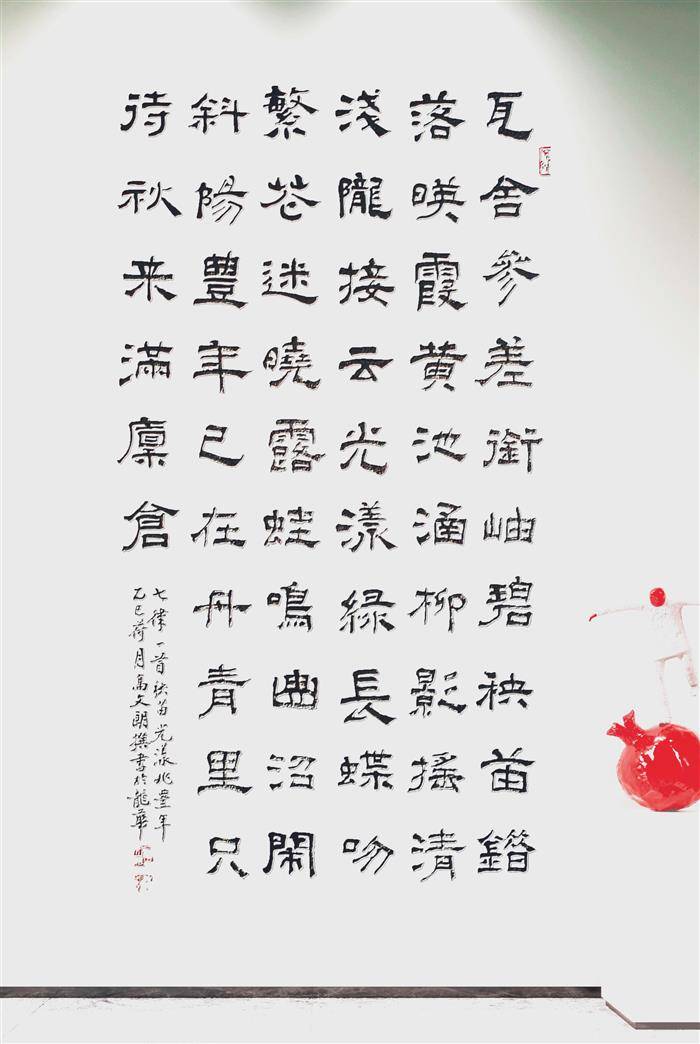 瓦舍參差銜岫碧秧苗錯
落暎霞黄池涵柳影搖清
淺隴接云光漾緑長蝶吻
繁花迷曉露蛙鳴幽沼閑
斜陽豊年已在丹青里只
待秋来滿廩倉
七律一首秧苗光漾兆豊年
乙巳荷月高文朗撰書於龍華